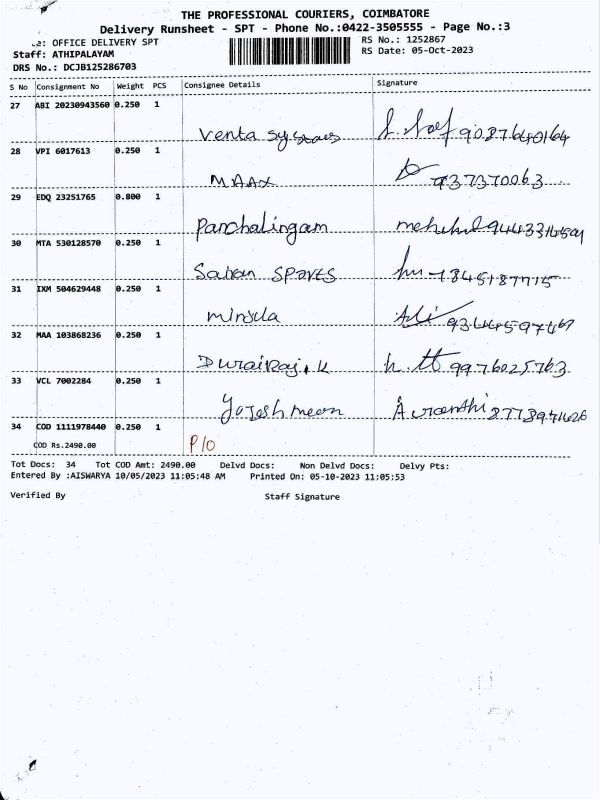 THE PROFESSIONAL COURIERS, COIMBATORE
Delivery Runsheet - SPT - Phone No.:0422-3505555 - Page No.:3
OFFICE DELIVERY SPT
RS No.: 1252867
Staff: ATHIPALAYAM
RS Date: 05-Oct-2023
DRS No.: DCJB125286703
S No Consignment No Weight PCS Consignee Details Signature
27 ABI 20230943560 0.250 1
Venta
28 VPI 6017613 0.250 1
MAAX
29 EDQ 23251765 0.800 1
Panchalingam
30 MTA 530128570 0.250 1
Spares
31 IXM 504629448 0.250 1
32 MAA 103868236 0.250 1
Durairaj. K 9976025763
33 VCL 7002284 0.250 1
34 COD 1111978440 0.250 1
COD Rs.2490.00 P/O
Tot Docs: 34 Tot COD Amt: 2490.00 Delvd Docs: Non Delvd Docs: Delvy Pts:
Entered By :AISWARYA 10/05/2023 11:05:48 AM Printed On: 05-10-2023 11:05:53
Verified By Staff Signature